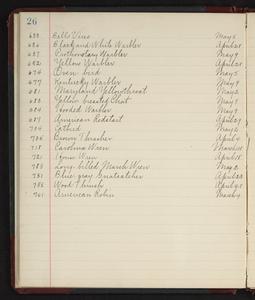 26
633 Bells Vireo May 5
636 Black and White Warbler April 28
637 Prothonotary Warbler May 9
652 Yellow Warbler April 28
674 Oven-bird May 5
677 Kentucky Warbler May 9
681 Maryland Yellowthroat May 2
683 Yellow breasted Chat May 9
684 Hooded Warbler May 9
687 American Redstart April 29
704 Catbird May 2
705 Brown Thrasher April
718 Carolina Wren March
721 Wren April 18
725 Long-billed Marsh Wren May 2
751 Blue-gray Gnatcatcher April 23
755 Wood Thrush April 28
761 American Robin March